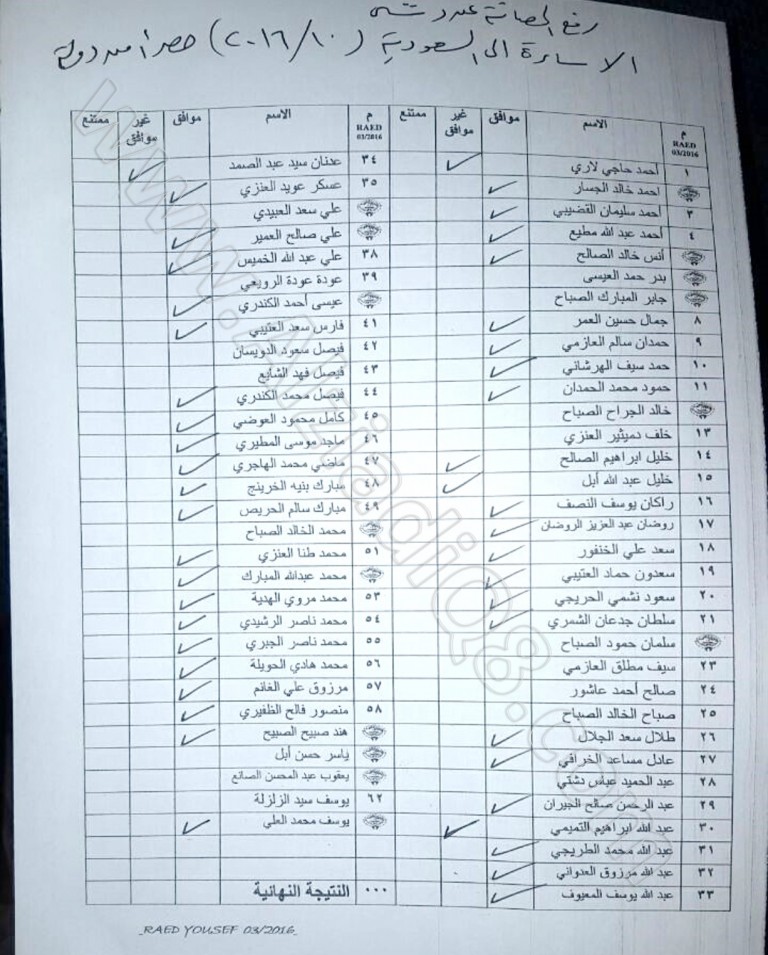 رفع الحصانة عن دشتي
الاساءة الى السعودية (٢٠١٦/١٠) حصر أمن دولة
م RAED 03/2016 الاسم موافق غير موافق ممتنع
١ أحمد حاجي لاري ✓
احمد خالد الجسار ✓
٣ أحمد سليمان القضيبي ✓
٤ أحمد عبد الله مطيع ✓
أنس خالد الصالح ✓
بدر حمد العيسى
جابر المبارك الصباح
٨ جمال حسين العمر ✓
٩ حمدان سالم العازمي ✓
١٠ حمد سيف الهرشاني ✓
١١ حمود محمد الحمدان ✓
خالد الجراح الصباح
١٣ خلف دميثير العنزي
١٤ خليل ابراهيم الصالح ✓
١٥ خليل عبد الله أبل ✓
١٦ راكان يوسف النصف ✓
١٧ روضان عبد العزيز الروضان ✓
١٨ سعد علي الخنفور ✓
١٩ سعدون حماد العتيبي ✓
٢٠ سعود نشمي الحريجي ✓
٢١ سلطان جدعان الشمري ✓
سلمان حمود الصباح
٢٣ سيف مطلق العازمي
٢٤ صالح أحمد عاشور
٢٥ صباح الخالد الصباح
٢٦ طلال سعد الجلال ✓
٢٧ عادل مساعد الخرافي ✓
٢٨ عبد الحميد عباس دشتي
٢٩ عبد الرحمن صالح الجيران ✓
٣٠ عبد الله ابراهيم التميمي ✓
٣١ عبد الله محمد الطريجي ✓
٣٢ عبد الله مرزوق العدواني ✓
٣٣ عبد الله يوسف المعيوف ✓
م RAED 03/2016 الاسم موافق غير موافق ممتنع
٣٤ عدنان سيد عبد الصمد ✓
٣٥ عسكر عويد العنزي ✓
علي سعد العبيدي
علي صالح العمير ✓
٣٨ علي عبد الله الخميس ✓
٣٩ عودة عودة الرويعي
عيسى أحمد الكندري ✓
٤١ فارس سعد العتيبي ✓
٤٢ فيصل سعود الدويسان
٤٣ فيصل فهد الشايع
٤٤ فيصل محمد الكندري ✓
٤٥ كامل محمود العوضي ✓
٤٦ ماجد موسى المطيري ✓
٤٧ ماضي محمد الهاجري ✓
٤٨ مبارك بنيه الخرينج ✓
٤٩ مبارك سالم الحريص ✓
محمد الخالد الصباح
٥١ محمد طنا العنزي ✓
محمد عبدالله المبارك ✓
٥٣ محمد مروي الهدية ✓
٥٤ محمد ناصر الرشيدي ✓
٥٥ محمد ناصر الجبري ✓
٥٦ محمد هادي الحويلة ✓
٥٧ مرزوق علي الغانم ✓
٥٨ منصور فالح الظفيري ✓
هند صبيح الصبيح ✓
ياسر حسن أبل
يعقوب عبد المحسن الصانع
٦٢ يوسف سيد الزلزلة
يوسف محمد العلي ✓
٠٠٠ النتيجة النهائية
_RAED YOUSEF 03/2016_